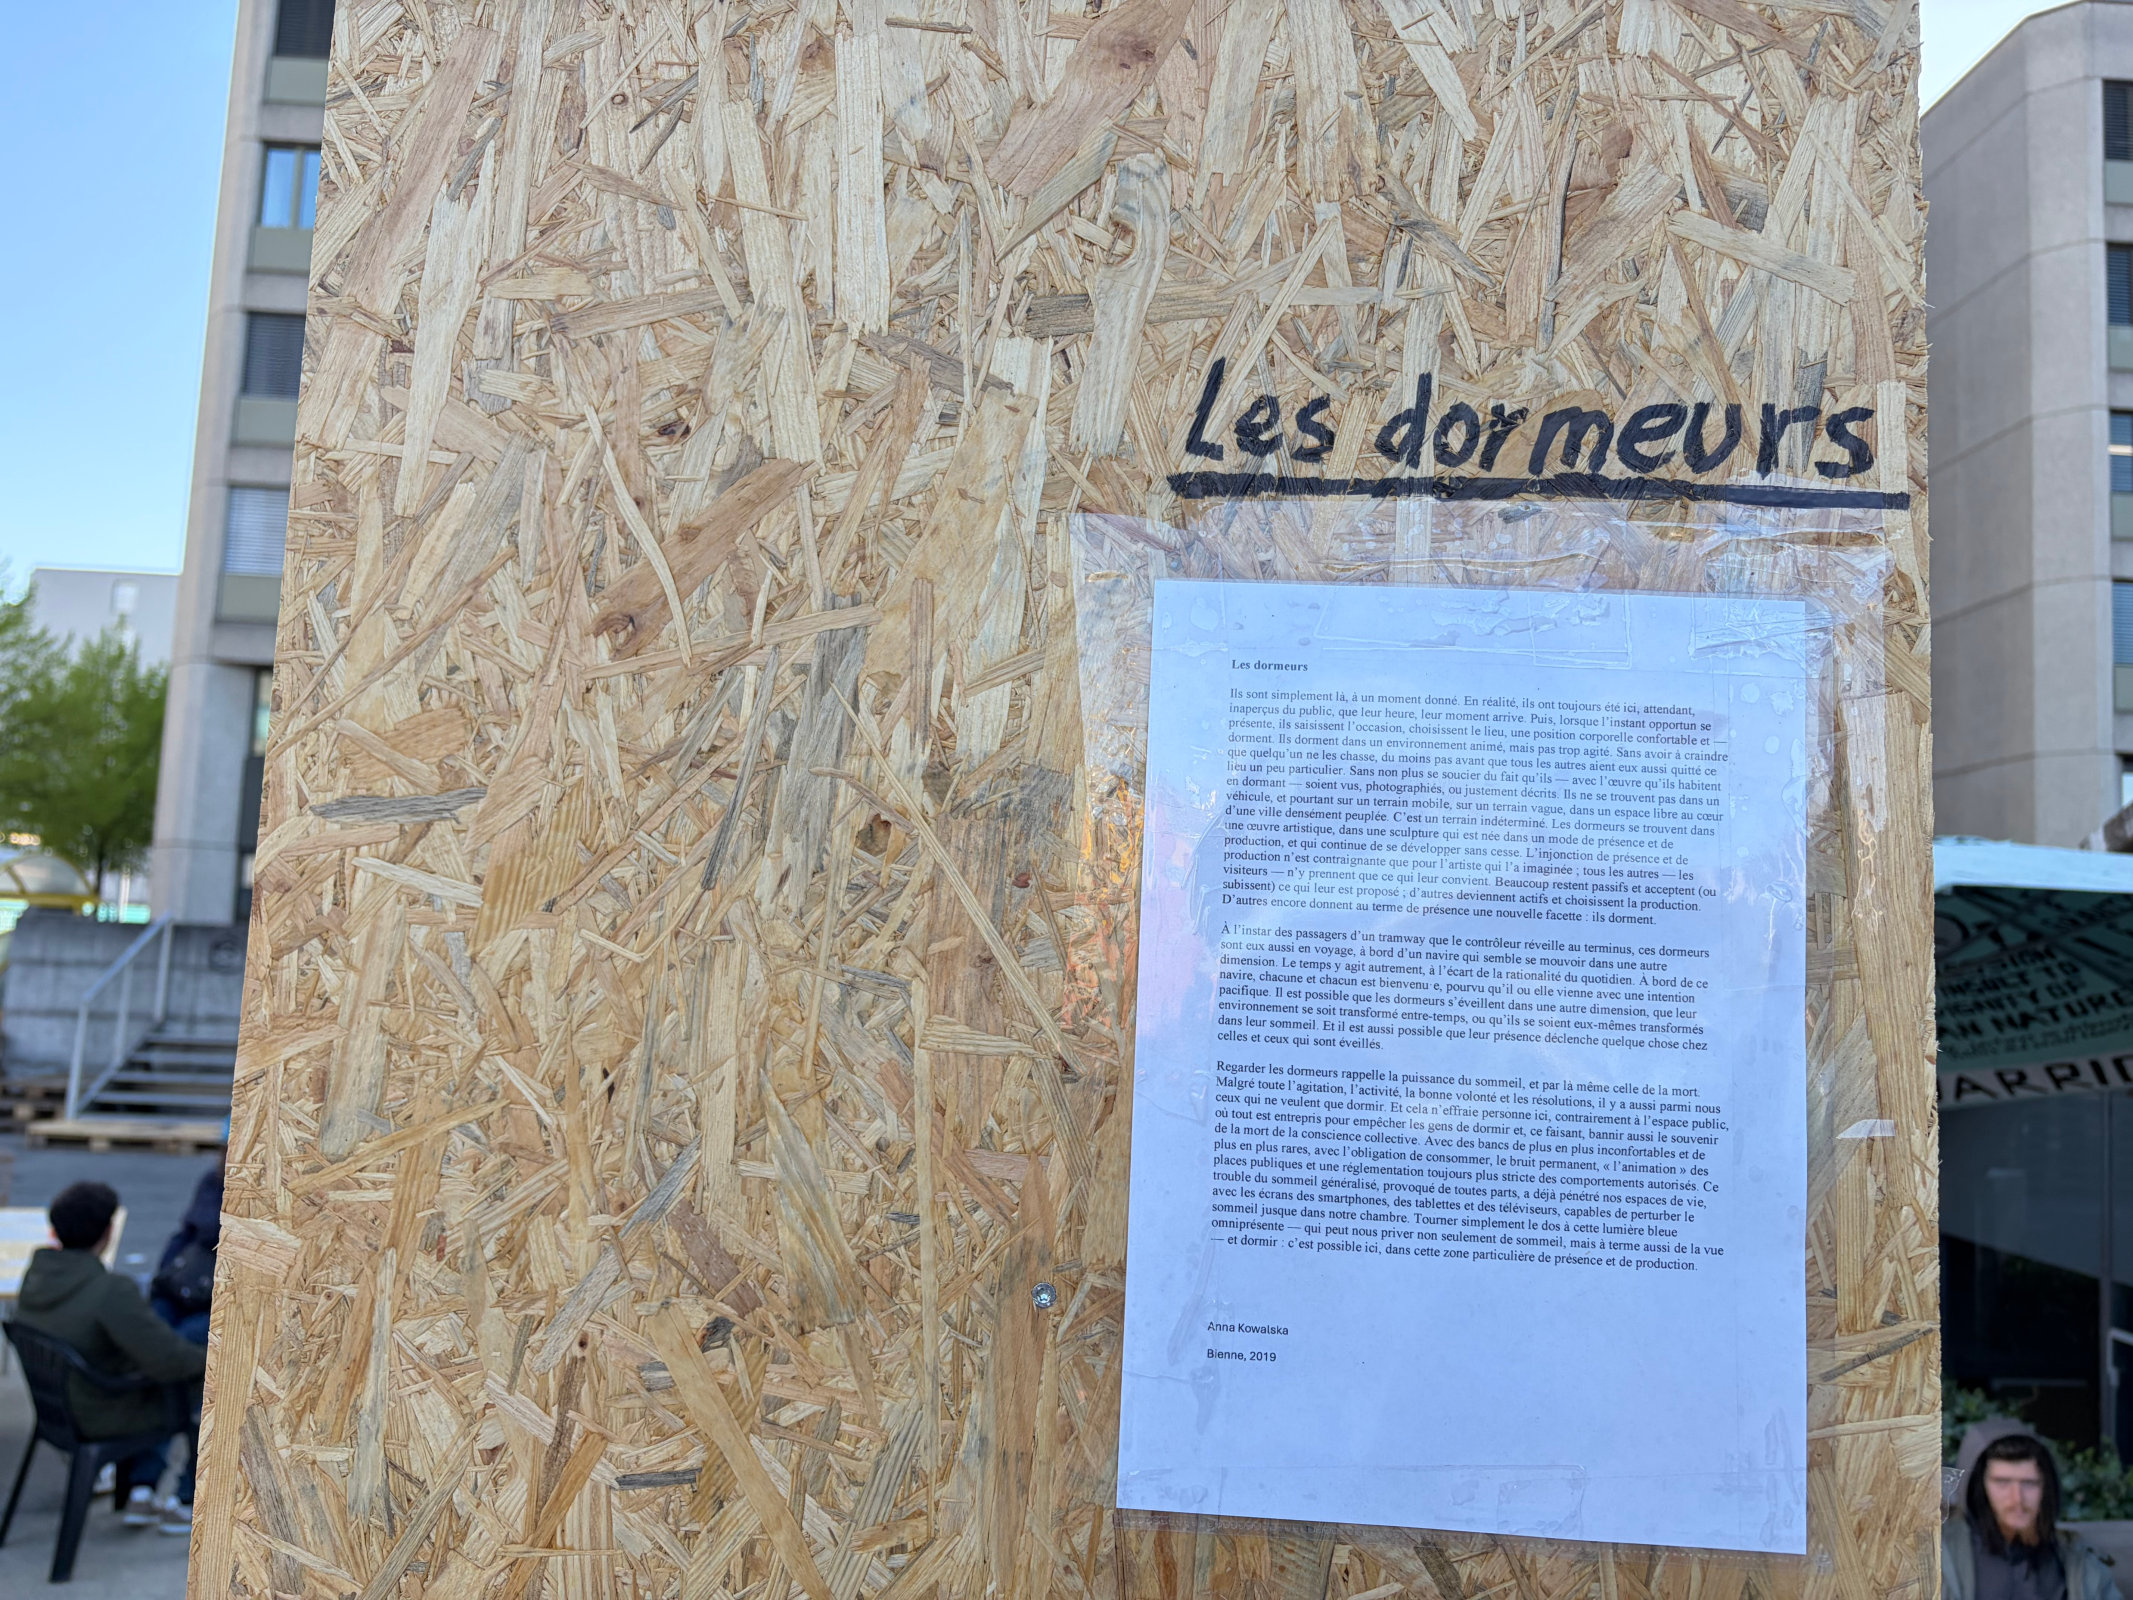 Les dormeurs
Les dormeurs
Ils sont simplement là, à un moment donné. En réalité, ils ont toujours été ici, attendant,
inaperçus du public, que leur heure, leur moment arrive. Puis, lorsque l'instant opportun se
présente, ils saisissent l'occasion, choisissent le lieu, une position corporelle confortable et —
dorment. Ils dorment dans un environnement animé, mais pas trop agité. Sans avoir à craindre
que quelqu'un ne les chasse, du moins pas avant que tous les autres aient eux aussi quitté ce
lieu un peu particulier. Sans non plus se soucier du fait qu'ils — avec l'œuvre qu'ils habitent
en dormant — soient vus, photographiés, ou justement décrits. Ils ne se trouvent pas dans un
véhicule, et pourtant sur un terrain mobile, sur un terrain vague, dans un espace libre au cœur
d'une ville densément peuplée. C'est un terrain indéterminé. Les dormeurs se trouvent dans
une œuvre artistique, dans une sculpture qui est née dans un mode de présence et de
production, et qui continue de se développer sans cesse. L'injonction de présence et de
production n'est contraignante que pour l'artiste qui l'a imaginée ; tous les autres — les
visiteurs — n'y prennent que ce qui leur convient. Beaucoup restent passifs et acceptent (ou
subissent) ce qui leur est proposé ; d'autres deviennent actifs et choisissent la production.
D'autres encore donnent au terme de présence une nouvelle facette : ils dorment.
À l'instar des passagers d'un tramway que le contrôleur réveille au terminus, ces dormeurs
sont eux aussi en voyage, à bord d'un navire qui semble se mouvoir dans une autre
dimension. Le temps y agit autrement, à l'écart de la rationalité du quotidien. À bord de ce
navire, chacune et chacun est bienvenu·e, pourvu qu'il ou elle vienne avec une intention
pacifique. Il est possible que les dormeurs s'éveillent dans une autre dimension, que leur
environnement se soit transformé entre-temps, ou qu'ils se soient eux-mêmes transformés
dans leur sommeil. Et il est aussi possible que leur présence déclenche quelque chose chez
celles et ceux qui sont éveillés.
Regarder les dormeurs rappelle la puissance du sommeil, et par là même celle de la mort.
Malgré toute l'agitation, l'activité, la bonne volonté et les résolutions, il y a aussi parmi nous
ceux qui ne veulent que dormir. Et cela n'effraie personne ici, contrairement à l'espace public,
où tout est entrepris pour empêcher les gens de dormir et, ce faisant, bannir aussi le souvenir
de la mort de la conscience collective. Avec des bancs de plus en plus inconfortables et de
plus en plus rares, avec l'obligation de consommer, le bruit permanent, « l'animation » des
places publiques et une réglementation toujours plus stricte des comportements autorisés. Ce
trouble du sommeil généralisé, provoqué de toutes parts, a déjà pénétré nos espaces de vie,
avec les écrans des smartphones, des tablettes et des téléviseurs, capables de perturber le
sommeil jusque dans notre chambre. Tourner simplement le dos à cette lumière bleue
omniprésente — qui peut nous priver non seulement de sommeil, mais à terme aussi de la vue
— et dormir : c'est possible ici, dans cette zone particulière de présence et de production.
Anna Kowalska
Bienne, 2019
NATURE